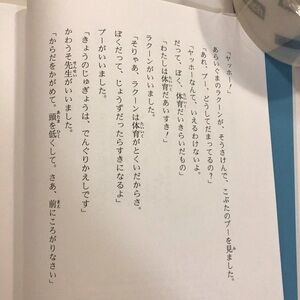 「ヤッホー！」
あらいぐまのラクーンが、そうさけんで、こぶたのブーを見ました。
「あれ、ブー、どうしてだまってるの？」
「ヤッホーなんて、いえるわけないよ。
だって、ぼく、体育だいきらいだもの」
「わたしは体育だあいすき！」
ラクーンがいいました。
「そりゃあ、ラクーンは体育がとくいだからさ。
ぼくだって、じょうずだったらすきになるよ」
ブーがいいました。
「きょうのじゅぎょうは、でんぐりかえしです」
かわうそ先生がいいました。
「からだをかがめて。頭を低くして。さあ、前にころがりなさい」